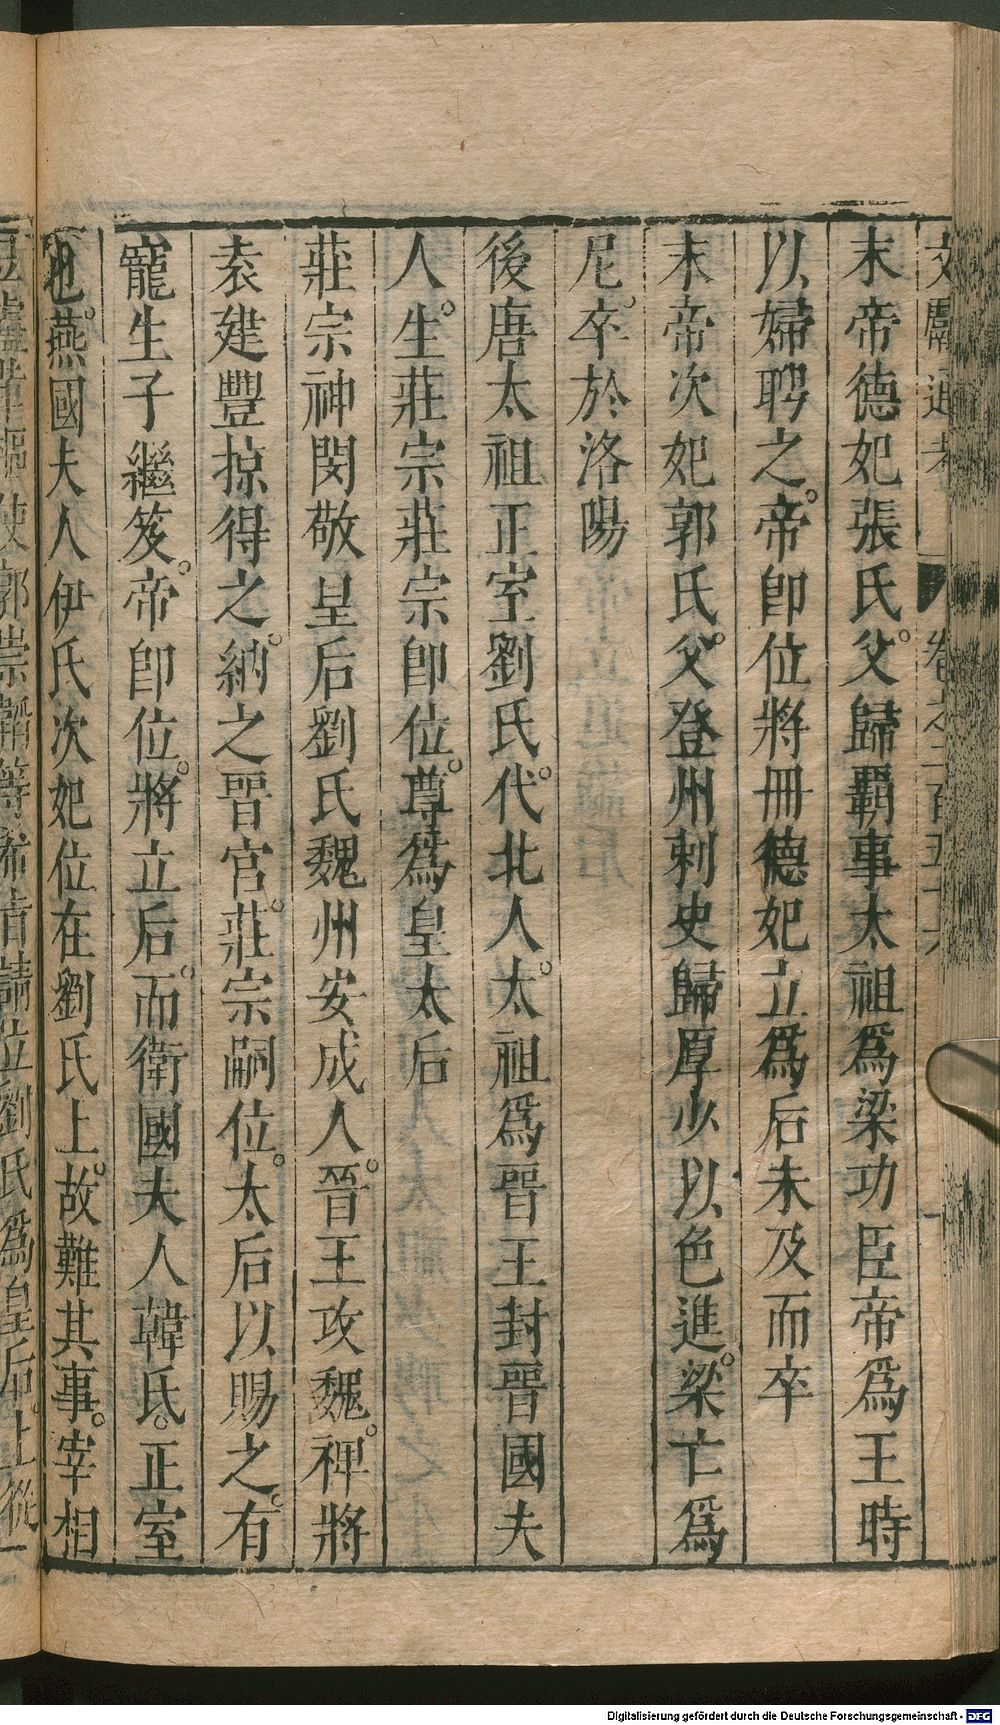 文獻通考 卷之二百五十六
末帝德妃張氏父歸霸事太祖爲梁功臣帝爲王時
以婦聘之帝卽位將冊德妃立爲后未及而卒
末帝次妃郭氏父登州刺史歸厚少以色進梁亡爲
尼卒於洛陽
後唐太祖正室劉氏代北人太祖爲晉王封晉國夫
人生莊宗莊宗卽位尊爲皇太后
莊宗神閔敬皇后劉氏魏州安成人晉王攻魏裨將
袁建豐掠得之納之晉宮莊宗嗣位太后以賜之有
寵生子繼岌帝卽位將立后而衛國夫人韓氏正室
也燕國夫人伊氏次妃位在劉氏上故難其事宰相
豆盧革樞使郭崇韜等希旨請立劉氏爲皇后上從
Digitalisierung gefördert durch die Deutsche Forschungsgemeinschaft - DFG